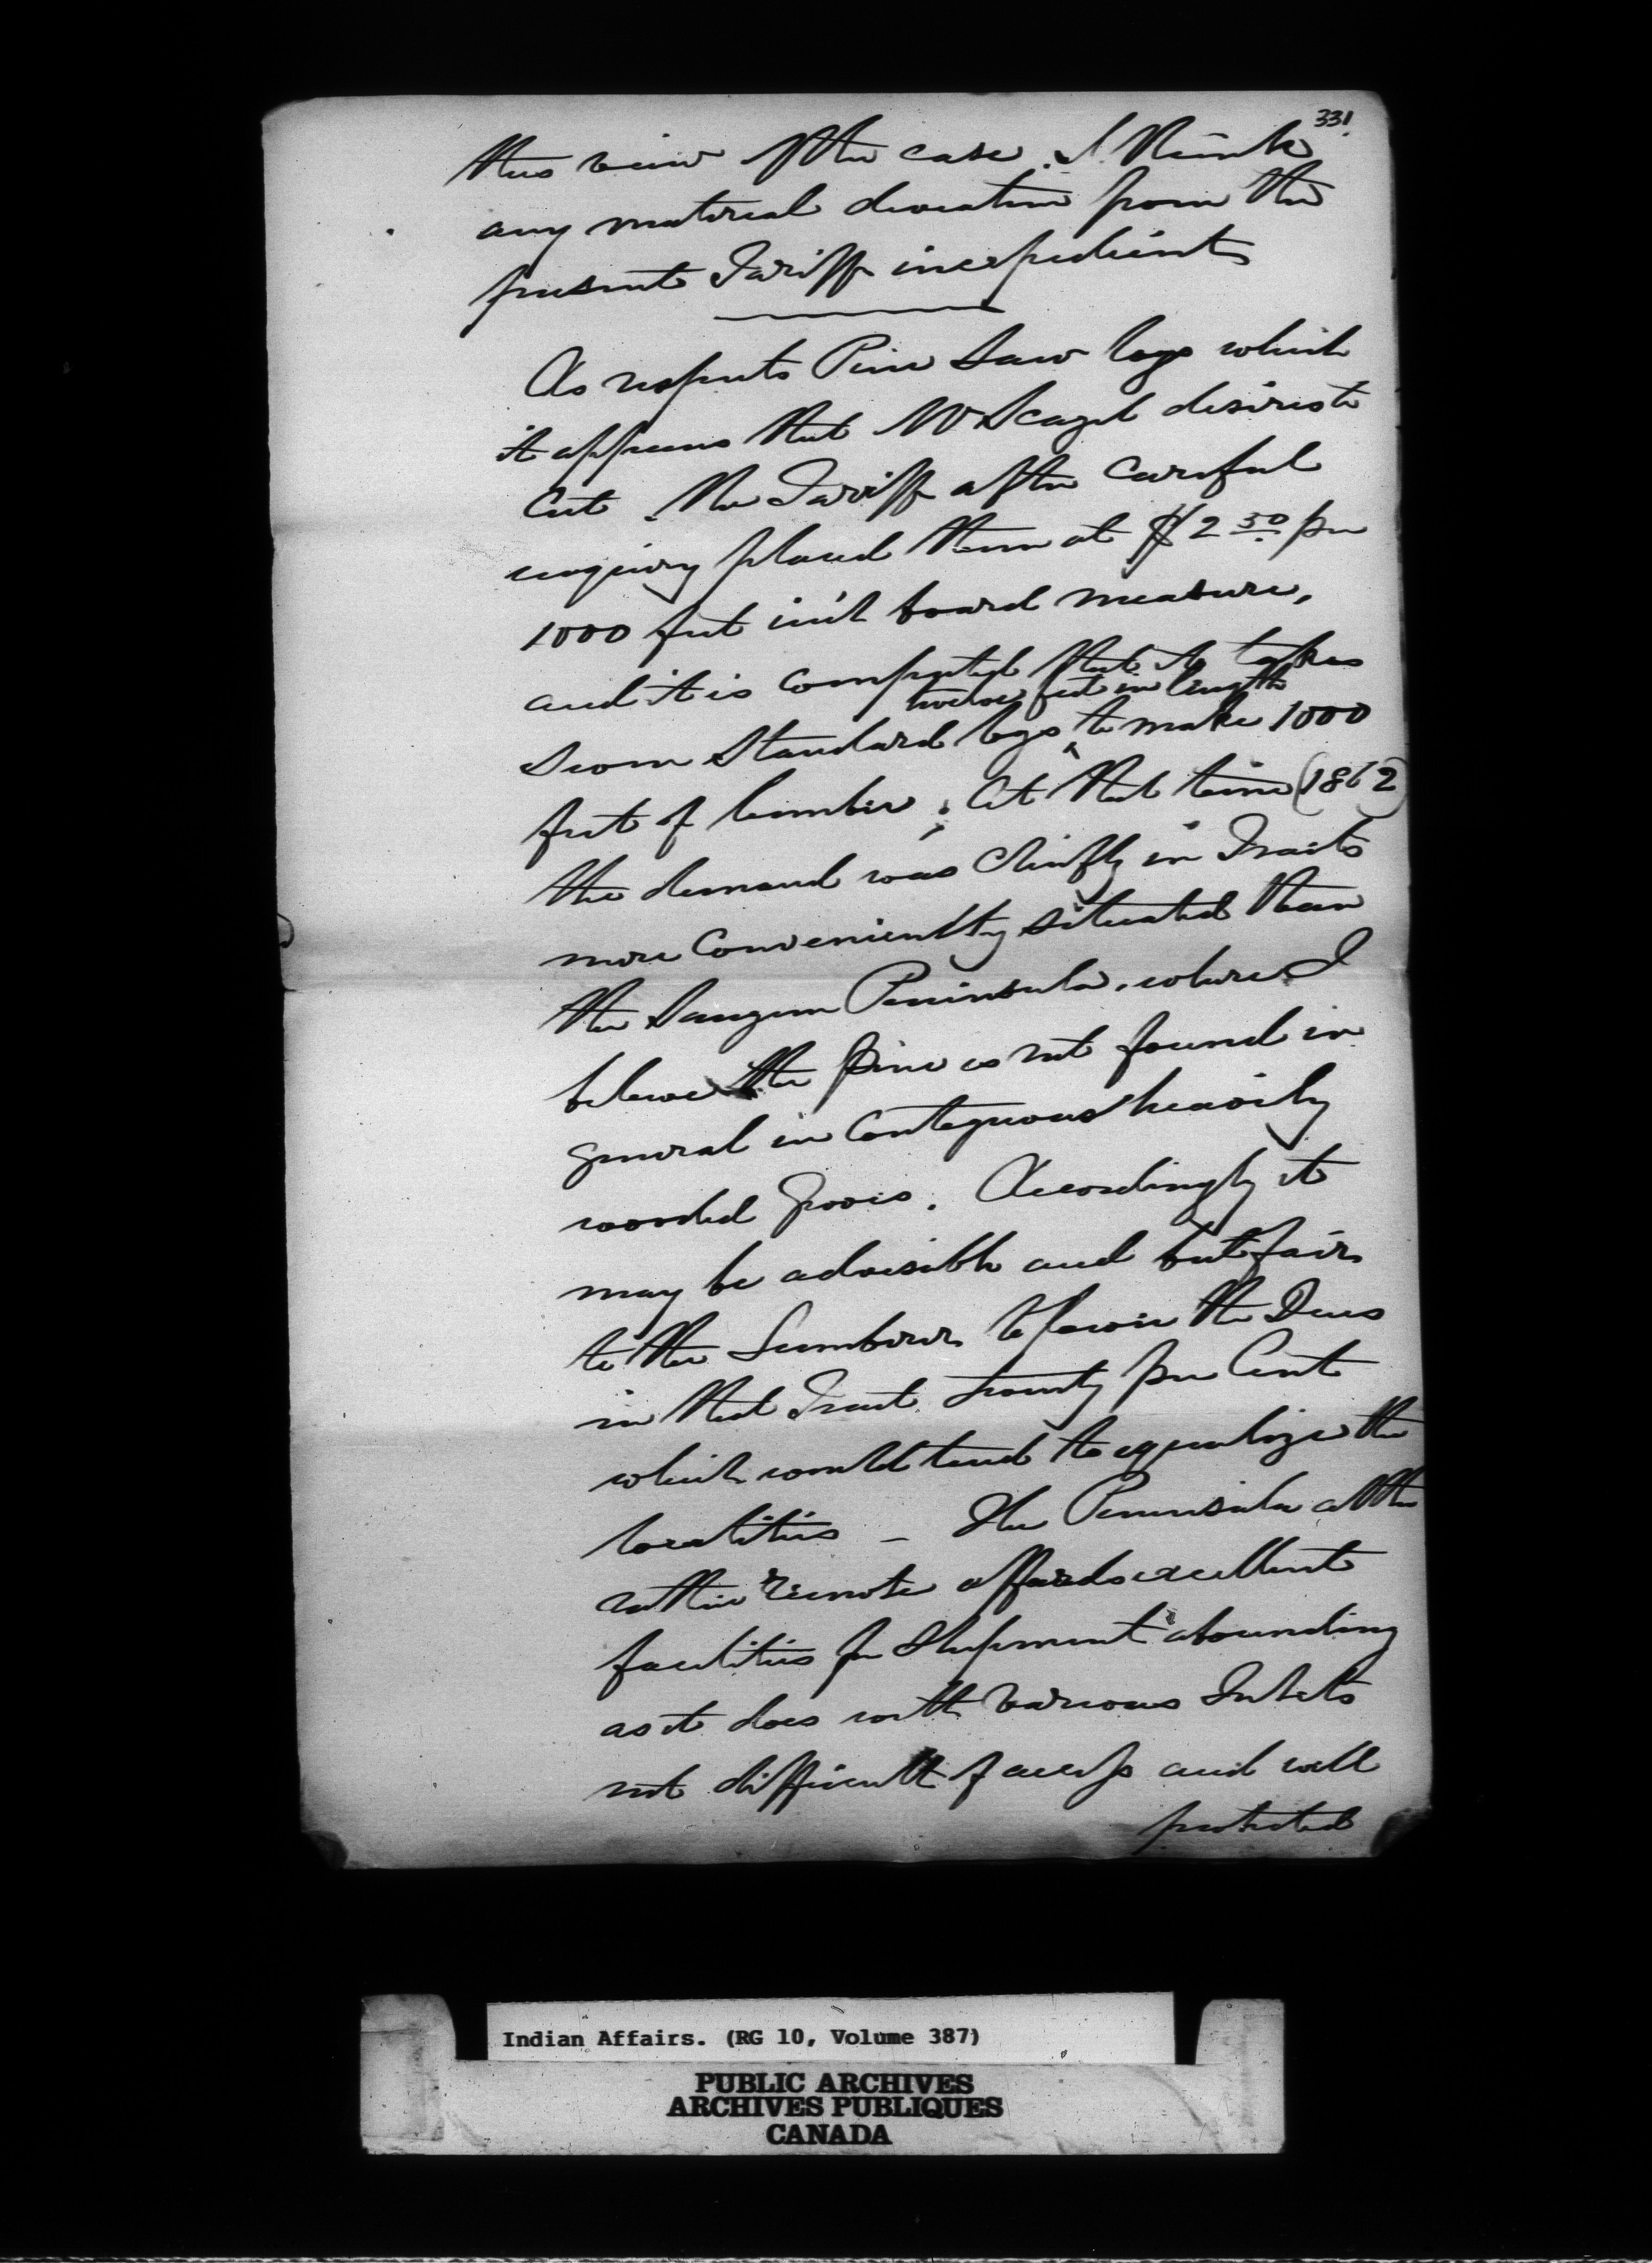 331.
this view of the case. I think
any material deviation from the
present Tariff inexpedient
As respects Pine Saw logs which
it appears that Mr Scagel desires to
Cut. The Tariff after Careful
enquiry placed them at $2 50 per
1000 feet inch board measure,
and it is Computed that it takes
twelve feet in length
seven Standard logs ^ to make 1000
feet of lumber; At that time (1862)
the demand was Chiefly in Tracts
more Conveniently situated than
the Saugeen Peninsula, where I
believe the pine is not found in
general in Contiguous heavily
wooded groves. Accordingly it
may be advisable and but fair
to the Lumberer to lower the Dues
in that Tract twenty per Cent
which would tend to equalize the
localities - The Peninsula altho
rather remote affords excellent
facilities for Shipment abounding
as it does with various Inlets
not difficult of access and well
protected
Indian Affairs. (RG 10, Volume 387)
PUBLIC ARCHIVES
ARCHIVES PUBLIQUES
CANADA